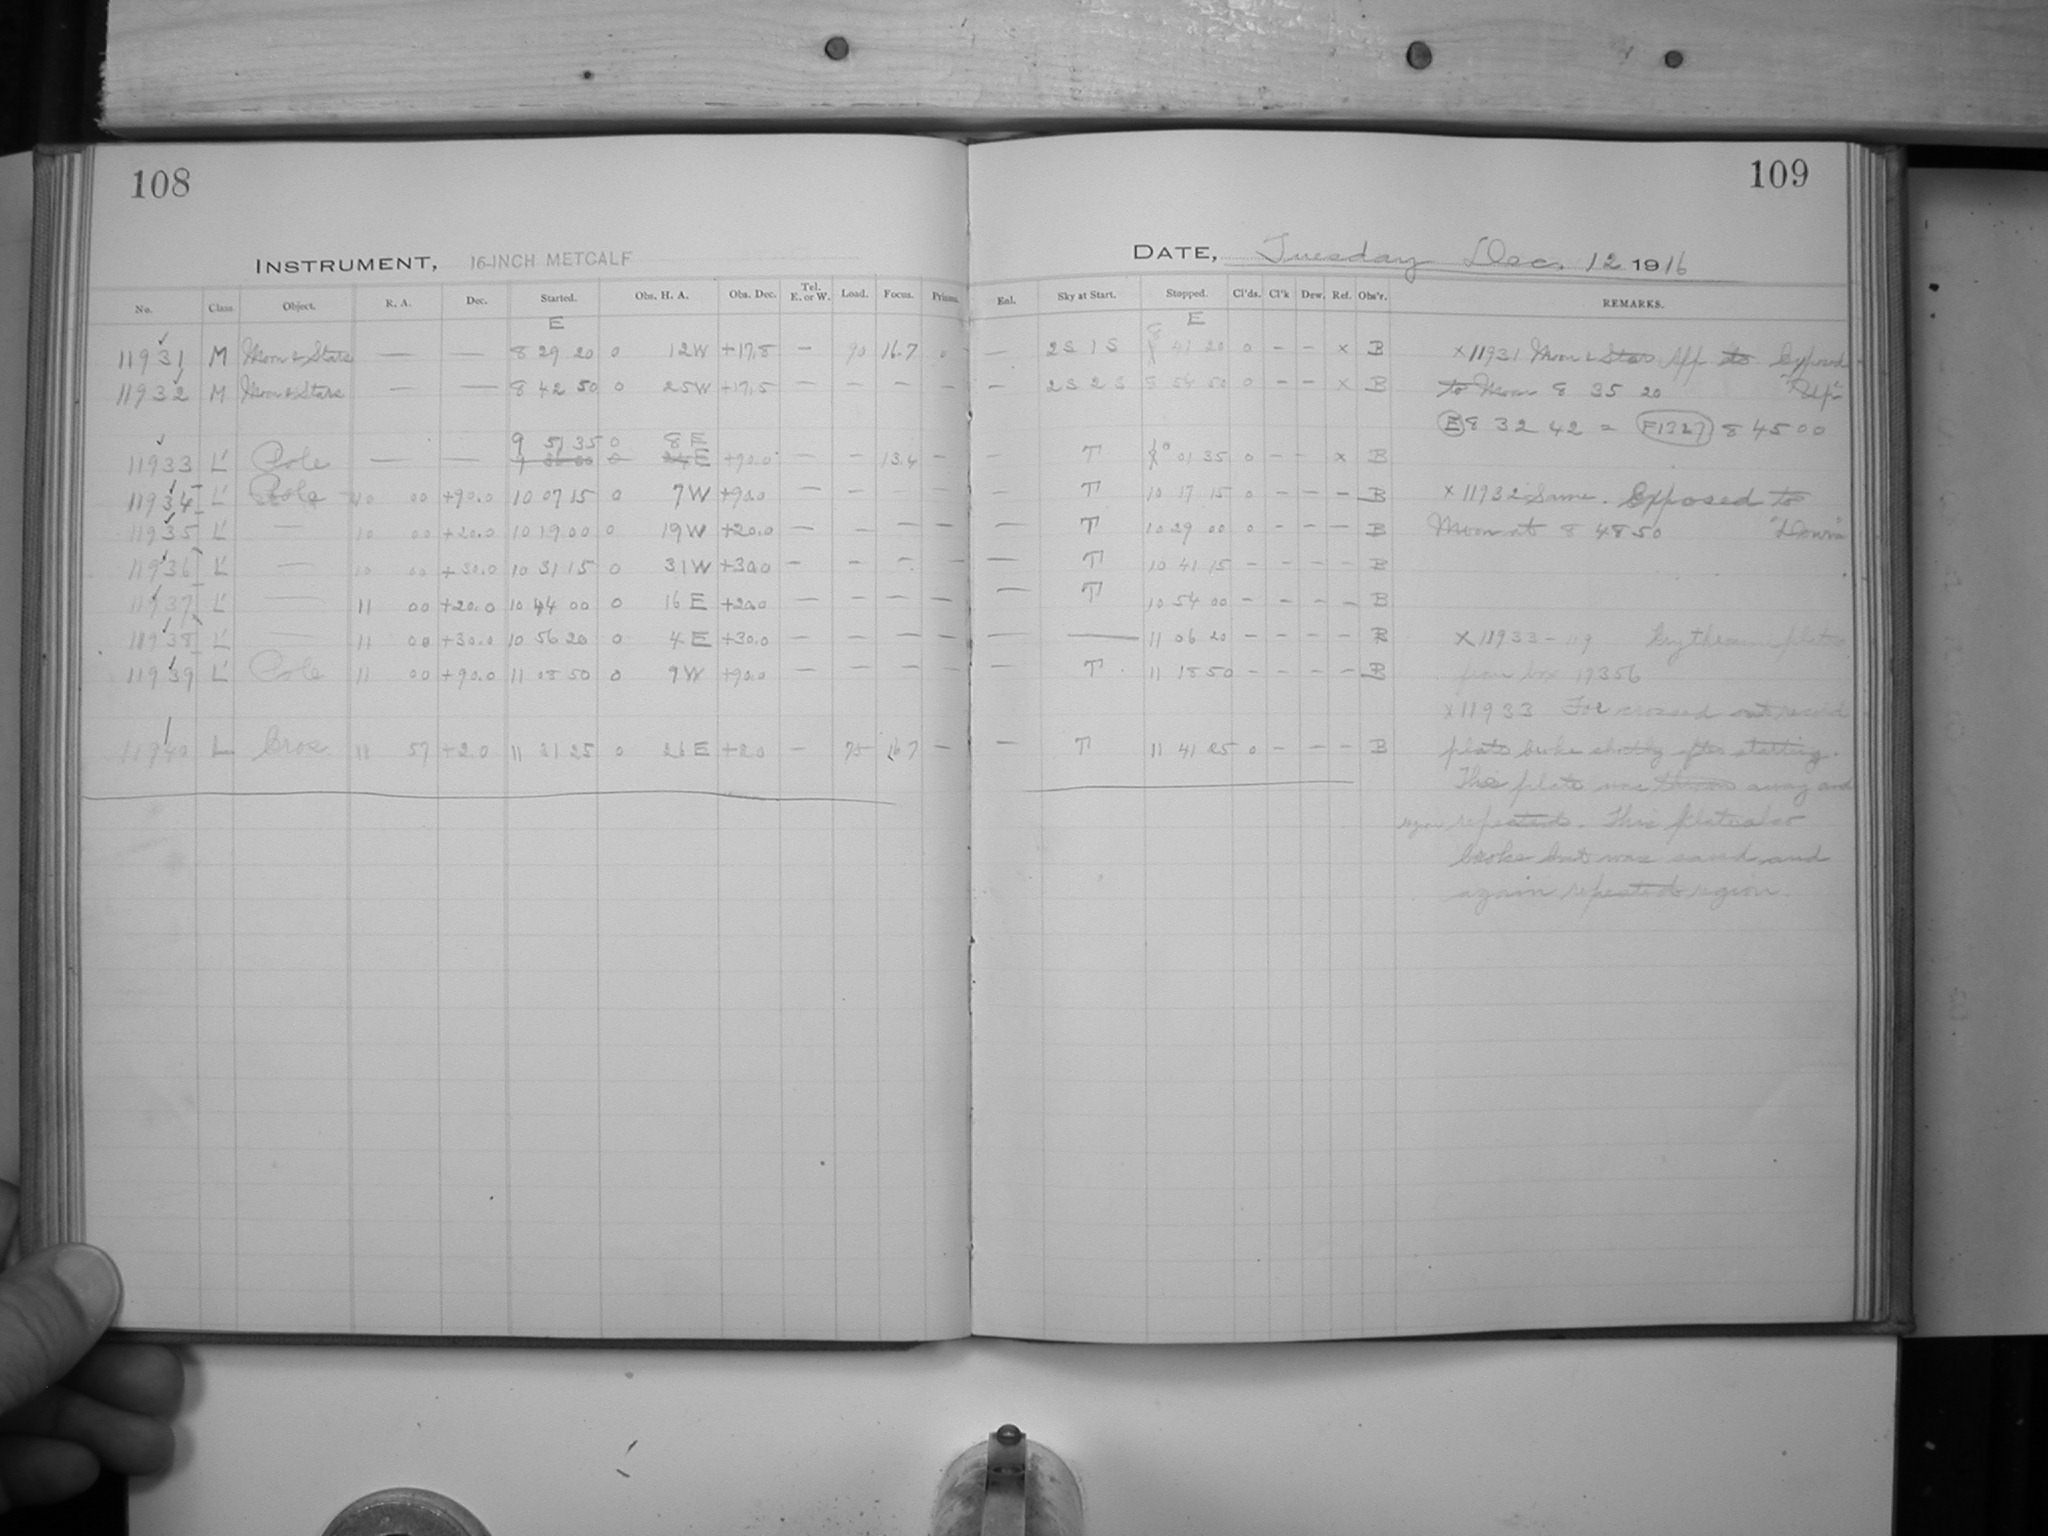 108
109
INSTRUMENT, 16-INCH METCALF
DATE, Tuesday Dec. 12 1916
No. Class. Object. R. A. Dec. Started. Obs. H. A. Obs. Dec. Tel. E. or W. Load. Focus. Prisms. Enl. Sky at Start. Stopped. Cl'ds. Cl'k Dew. Ref. Obs'r. REMARKS.
E E
11931 M Moon & Stars — — 8 29 20 0 12W +17.8 — 90 16.7 0 — 2S 1S 8 41 20 0 — — x B x 11931 Moon & Star App to Exposed
11932 M Moon & Stars — — 8 42 50 0 25W +17.5 — — — — — 2S 2S 8 54 50 0 — — x B to Moon 8 35 20 "Up"
E 8 32 42 = F1327 8 45 00
9 51 35 0 8 E
11933 L' Pole — — +90.0 — — 13.4 — T 01 35 0 — — x B
11934 L' Pole 10 00 +90.0 10 07 15 0 7W +90.0 — — — — — T 10 17 15 0 — — — B x 11932 Same. Exposed to
11935 L' — 10 00 +20.0 10 19 00 0 19W +20.0 — — — — — T 10 29 00 0 — — — B Moon at 8 48 50 "Down"
11936 L' — 10 00 +30.0 10 31 15 0 31W +30.0 — — — — — T 10 41 15 — — — — B
11937 L' — 11 00 +20.0 10 44 00 0 16 E +20.0 — — — — — T 10 54 00 — — — — B
11938 L' — 11 00 +30.0 10 56 20 0 4 E +30.0 — — — — — — 11 06 20 — — — — B x 11933 - plates
11939 L' Pole 11 00 +90.0 11 08 50 0 9W +90.0 — — — — — T 11 18 50 — — — — B from box 19356
x 11933 For crossed out record
11940 L 11 57 +2.0 11 31 25 0 26 E +2.0 — 75 16.7 — — T 11 41 25 0 — — — B plate broke shortly after starting.
This plate was thrown away and
region repeated. This plate also
broke but was saved and
again repeated region.